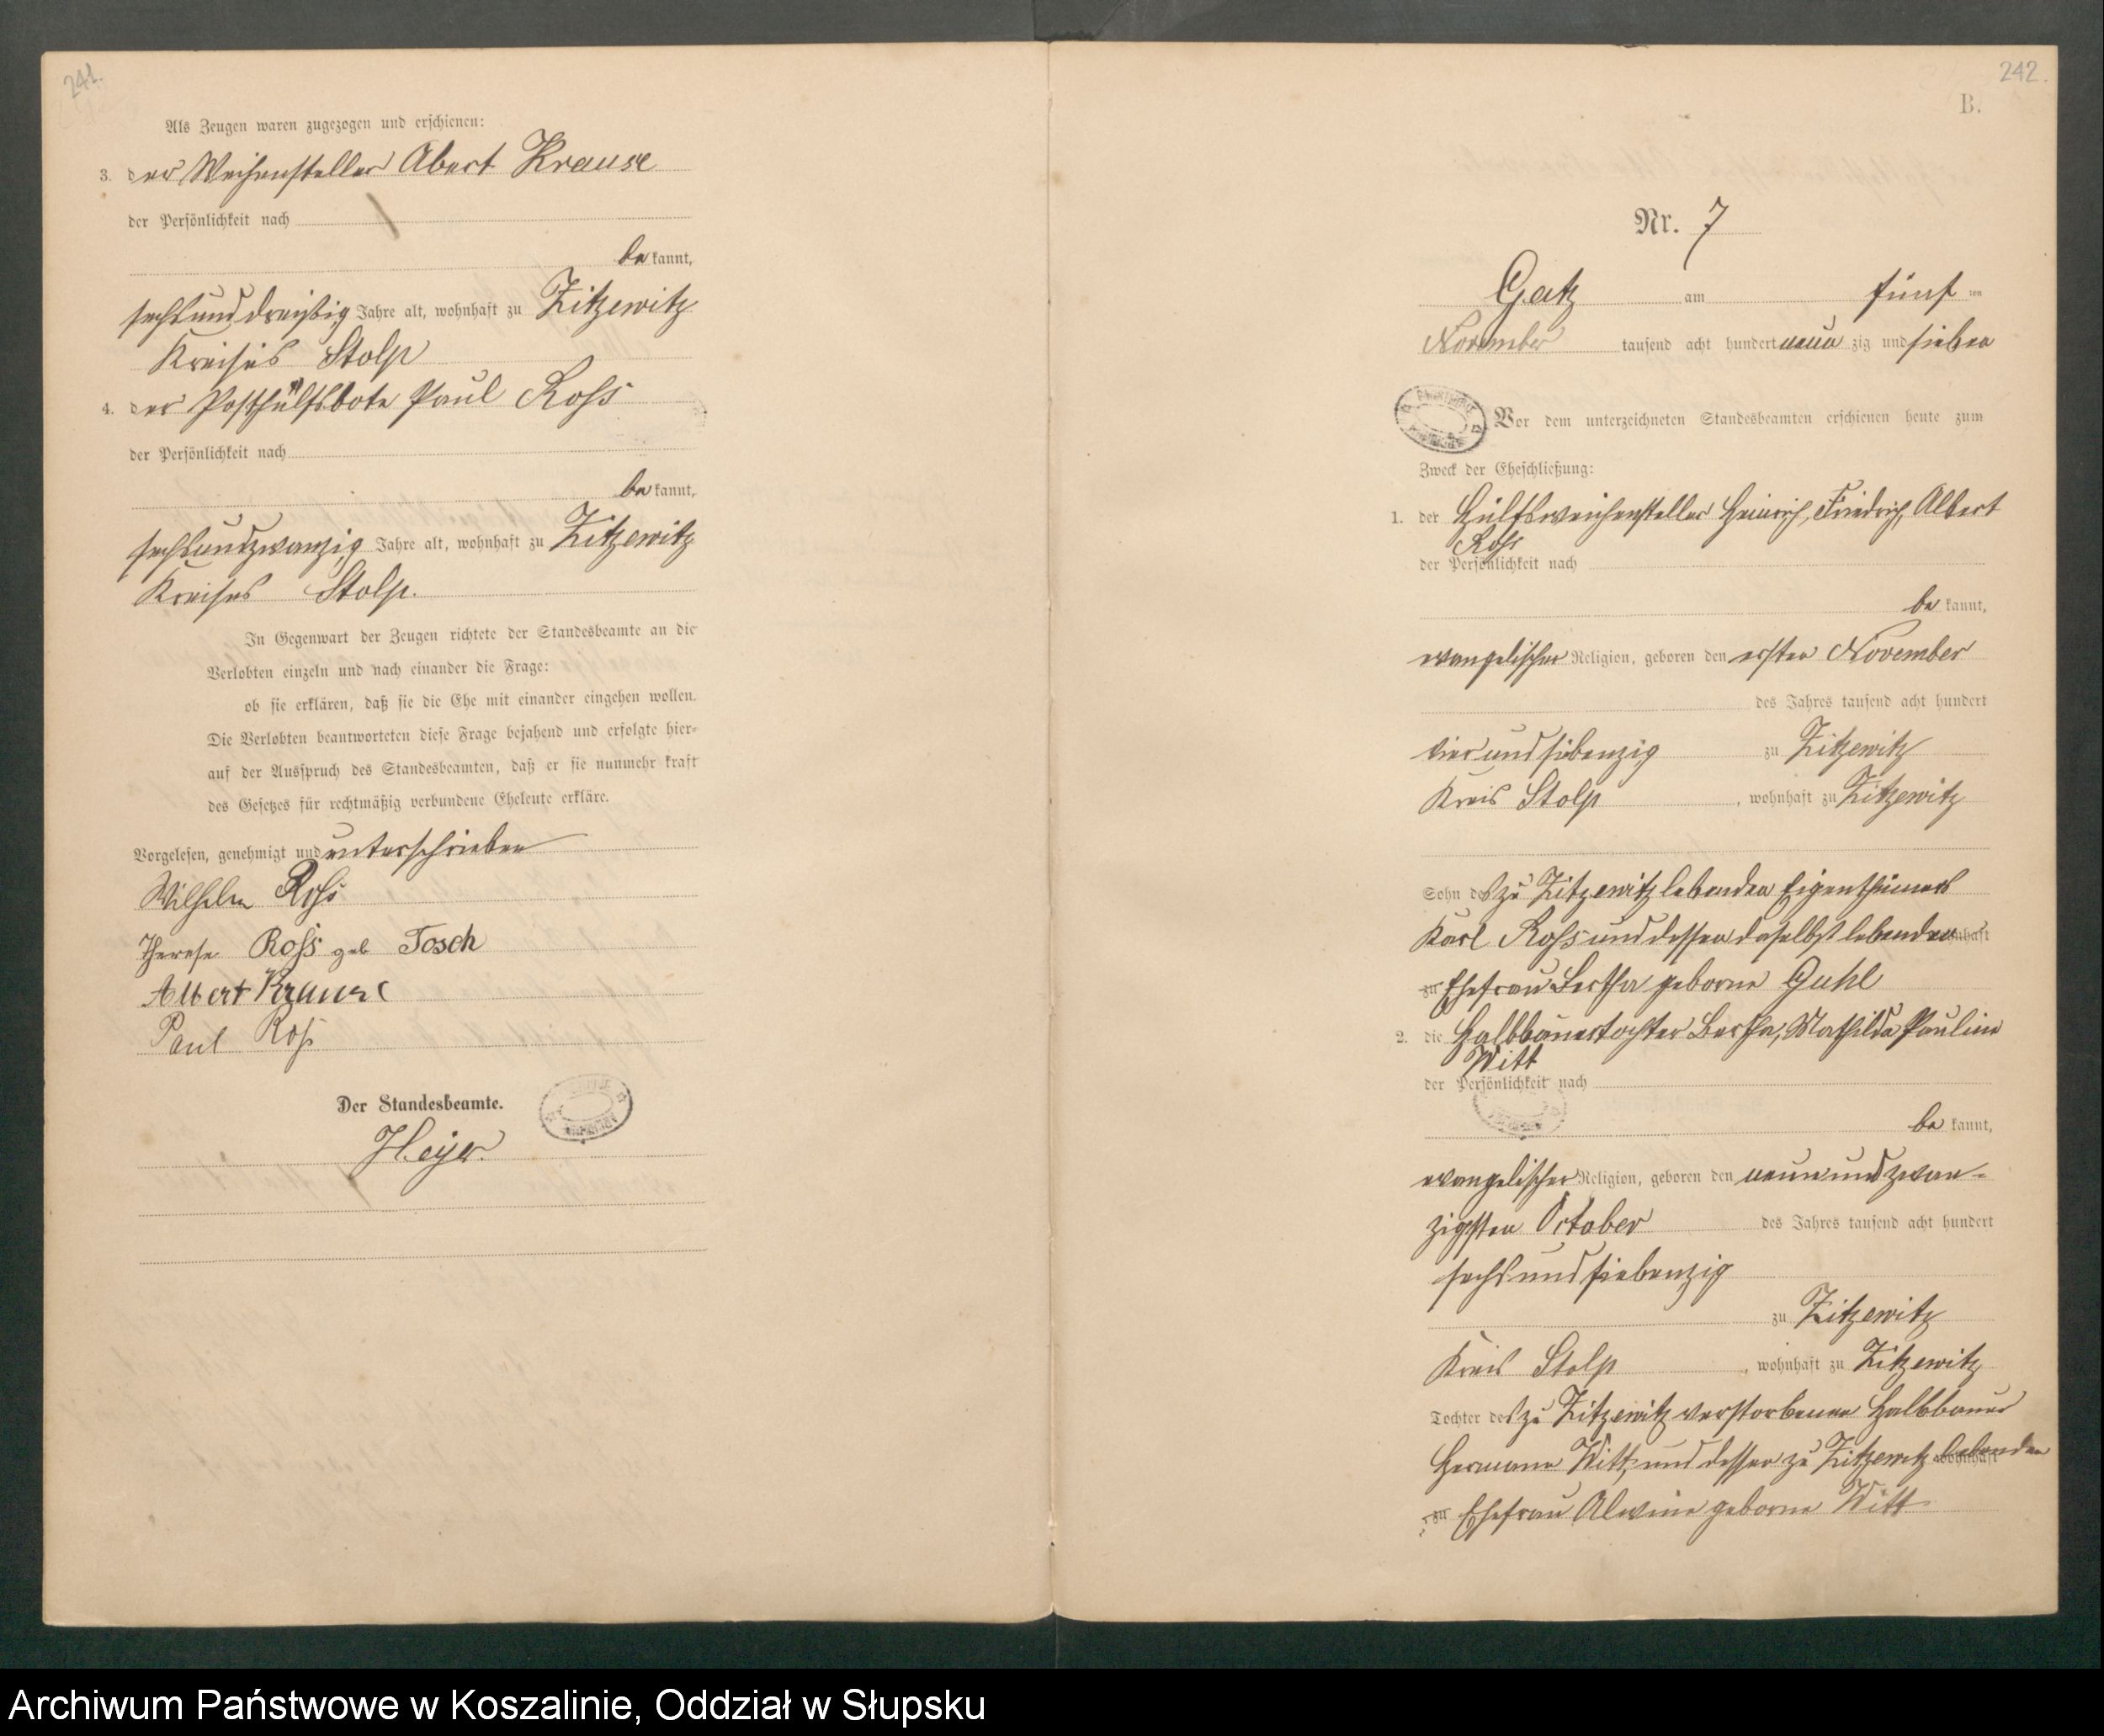 241.
Als Zeugen waren zugezogen und erschienen:
3. der Weichensteller Abert Krause
der Persönlichkeit nach
be kannt,
sechsunddreißig Jahre alt, wohnhaft zu Zitzewitz
Kreises Stolp
4. der Posthülfsbote Paul Ross
der Persönlichkeit nach
be kannt,
sechsundzwanzig Jahre alt, wohnhaft zu Zitzewitz
Kreises Stolp.
In Gegenwart der Zeugen richtete der Standesbeamte an die
Verlobten einzeln und nach einander die Frage:
ob sie erklären, daß sie die Ehe mit einander eingehen wollen.
Die Verlobten beantworteten diese Frage bejahend und erfolgte hier-
auf der Ausspruch des Standesbeamten, daß er sie nunmehr kraft
des Gesetzes für rechtmäßig verbundene Eheleute erkläre.
Vorgelesen, genehmigt und unterschrieben
Wilhelm Ross
Therese Ross geb Tosch
Albert Krause
Paul Ross
Der Standesbeamte.
Heyer.
242.
B.
Nr. 7
Gatz am fünf ten
November tausend acht hundert neun zig und sieben
Vor dem unterzeichneten Standesbeamten erschienen heute zum
Zweck der Eheschließung:
1. der Hülfsweichensteller Heinrich, Friedrich, Albert
Ross
der Persönlichkeit nach
be kannt,
evangelischer Religion, geboren den ersten November
des Jahres tausend acht hundert
vierundsiebenzig zu Zitzewitz
Kreis Stolp, wohnhaft zu Zitzewitz
Sohn des zu Zitzewitz lebenden Eigenthümers
Karl Ross und dessen daselbst lebenden wohnhaft
zu Ehefrau Bertha geborne Guhl
2. die Halbbauertochter Bertha, Mathilde Pauline
Witt
der Persönlichkeit nach
be kannt,
evangelischer Religion, geboren den neunundzwan-
zigsten October des Jahres tausend acht hundert
sechsundsiebenzig
zu Zitzewitz
Kreis Stolp, wohnhaft zu Zitzewitz
Tochter des zu Zitzewitz verstorbenen Halbbauer
Hermann Witt, und dessen zu Zitzewitz lebenden wohnhaft
zu Ehefrau Alwine geborne Witt
Archiwum Państwowe w Koszalinie, Oddział w Słupsku